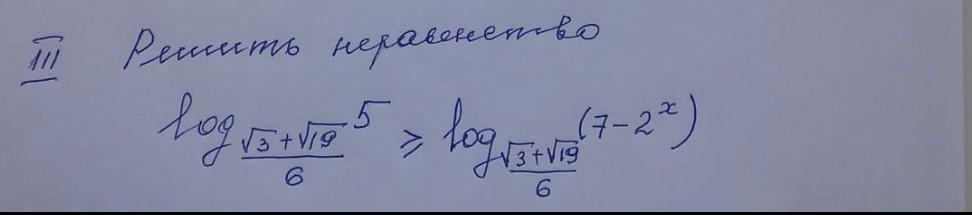 III Решить неравенство
log_{\frac{√3+√19}{6}} 5 ≥ log_{\frac{√3+√19}{6}} (7-2^x)